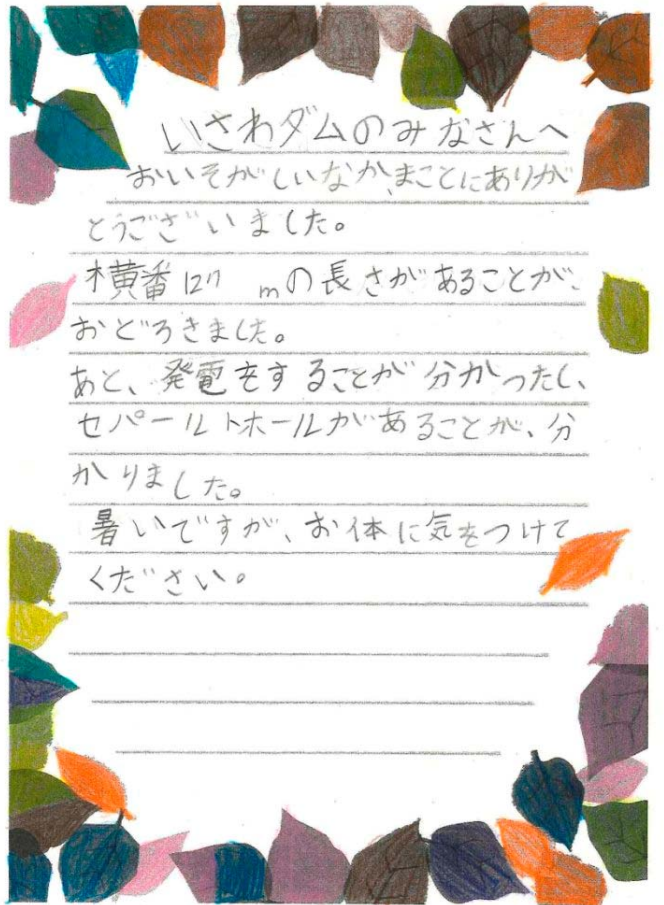 いさわダムのみなさんへ
おいそがしいなか、まことにありが
とうございました。
横番127 mの長さがあることが、
おどろきました。
あと、発電をすることが分かったし、
セパールトホールがあることが、分
かりました。
暑いですが、お体に気をつけて
ください。